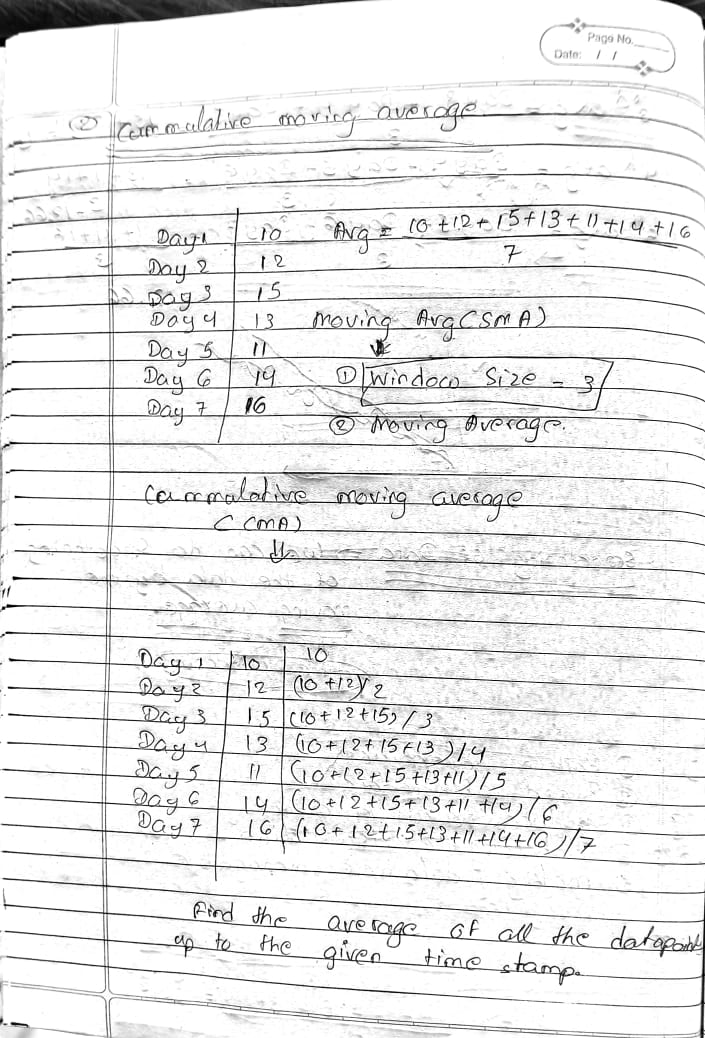 Page No.
Date: / /
② Cummulative moving average
Day 1 10 Avg = 10+12+15+13+11+14+16
7
Day 2 12
Day 3 15
Day 4 13 moving Avg (SMA)
Day 5 11
Day 6 14 ① Window Size = 3
Day 7 16
② Moving Average.
Cummulative moving average
(CMA)
Day 1 10 10
Day 2 12 (10+12)/2
Day 3 15 (10+12+15)/3
Day 4 13 (10+12+15+13)/4
Day 5 11 (10+12+15+13+11)/5
Day 6 14 (10+12+15+13+11+14)/6
Day 7 16 (10+12+15+13+11+14+16)/7
Find the average of all the datapoint
up to the given time stamp.